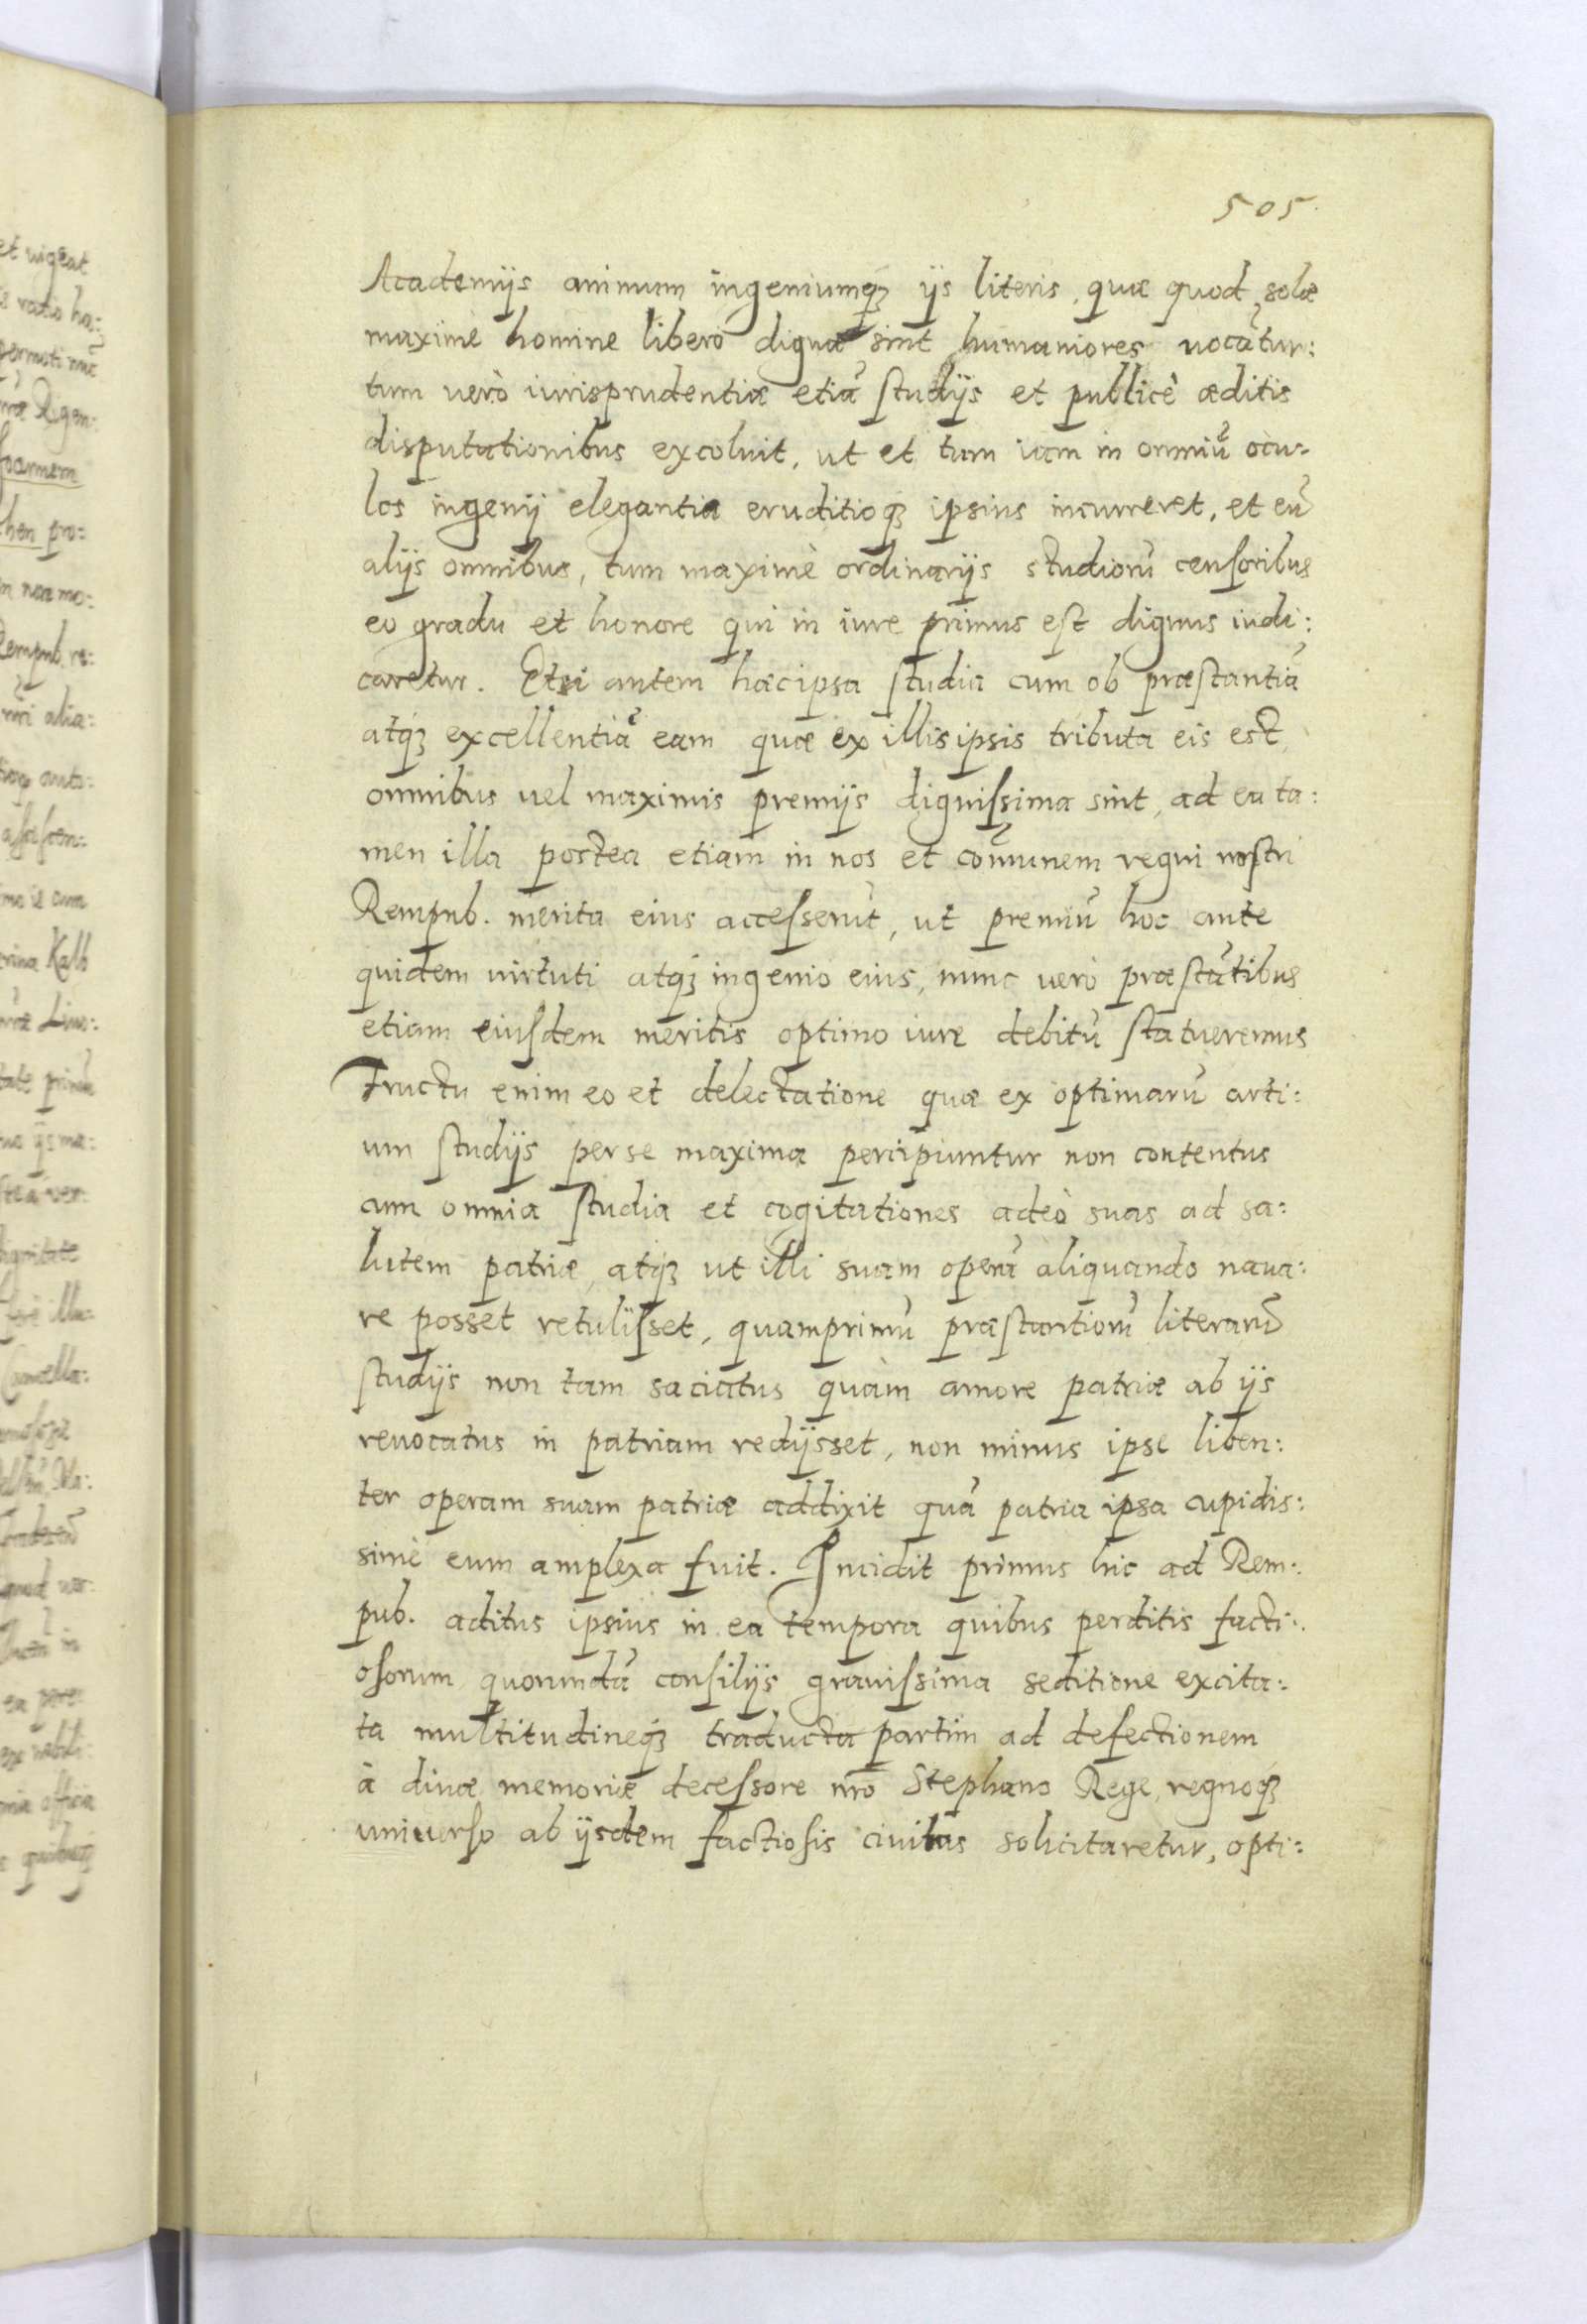 505.
Academijs animum ingeniumq3 ijs literis, quæ quod solæ
maximè homine libero dignæ sint humaniores uocãtur:
tum verò iurisprudentiæ etiã studijs et publicè æditis
disputationibus excoluit, ut et tum iam in omniũ ocu-
los ingenij elegantia eruditioq3 ipsius incurreret, et cũ
alijs omnibus, tum maximè ordinarijs studiorũ censoribus
eo gradu et honore qui in iure primus est dignus iudi:
caretur. Etsi autem hæc ipsa studia cum ob præstantiã
atq3 excellentiã eam quæ ex illis ipsis tributa eis est,
omnibus uel maximis premijs dignissima sint, ad ea ta:
men illa postea etiam in nos et com̃unem regni nostri
Rempub. merita eius accesserũt, ut premiũ hoc ante
quidem virtuti atq3 ingenio eius, nunc verò præstãtibus
etiam eiusdem meritis optimo iure debitũ statueremus
Fructu enim eo et delectatione quæ ex optimarũ arti:
um studijs per se maxima percipiuntur non contentus
cum omnia studia et cogitationes adeò suas ad sa:
lutem patriæ, atq3 ut illi suam operã aliquando naua:
re posset retulisset, quamprimũ præstantiorũ literarũ
studijs non tam saciatus quàm amore patriæ ab ijs
reuocatus in patriam redijsset, non minus ipse liben:
ter operam suam patriæ addixit quã patria ipsa cupidis:
simè eum amplexa fuit. Incidit primus hic ad Rem:
pub. aditus ipsius in ea tempora quibus perditis facti:
osorum quorundã consilijs grauissima seditione excita:
ta multitudineq3 traducta partim ad defectionem
à diuæ memoriæ decessore nrõ Stephano Rege, regnoq3
uniuerso ab ijsdem factiosis ciuitas solicitaretur, opti: